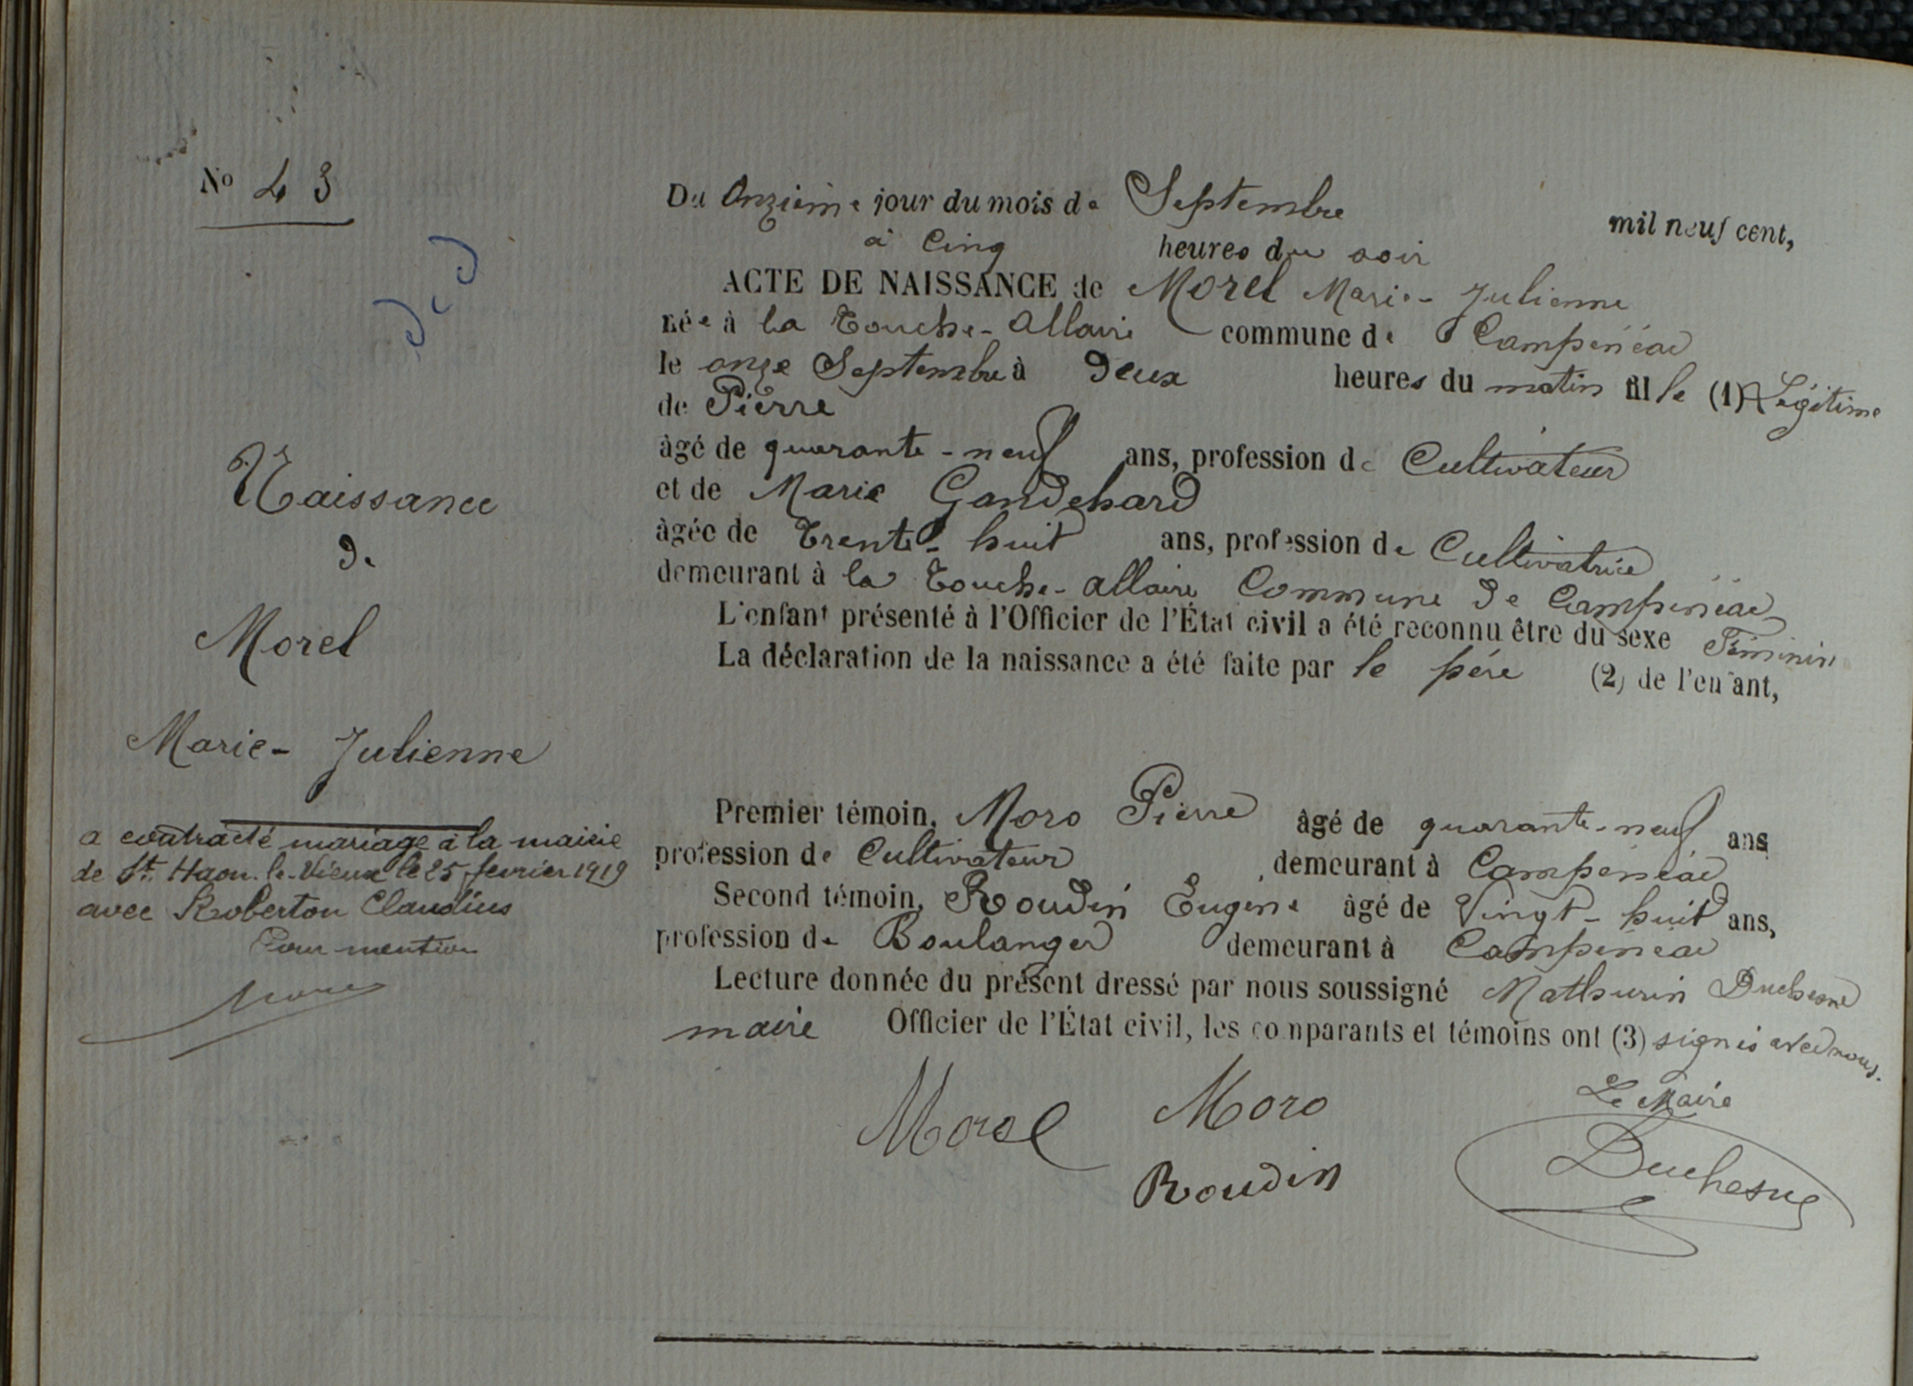 No 43
Du Onzième jour du mois de Septembre mil neuf cent,
à Cinq heures du soir
ACTE DE NAISSANCE de Morel Marie-Julienne
née à la Touche-Allaire commune de Campénéac
le onze Septembre à Deux heures du matin fille (1) Légitime
de Pierre
âgé de quarante-neuf ans, profession de Cultivateur
et de Marie Gandehard
âgée de Trente-huit ans, profession de Cultivatrice
demeurant à la Touche-Allaire Commune de Campénéac
L'enfant présenté à l'Officier de l'État civil a été reconnu être du sexe Féminin
La déclaration de la naissance a été faite par le père (2) de l'enfant,
Premier témoin, Moro Pierre âgé de quarante-neuf ans
profession de Cultivateur demeurant à Campénéac
Second témoin, Roudin Eugène âgé de Vingt-huit ans,
profession de Boulanger demeurant à Campénéac
Lecture donnée du présent dressé par nous soussigné Mathurin Duchesne
maire Officier de l'État civil, les comparants et témoins ont (3) signés avec nous.
Morel Moro Le Maire
Roudin Duchesne
Naissance
De
Morel
Marie-Julienne
a contracté mariage à la mairie
de St. Haon-le-Vieux le 25 février 1919
avec Roberton Claudius
Pour mention